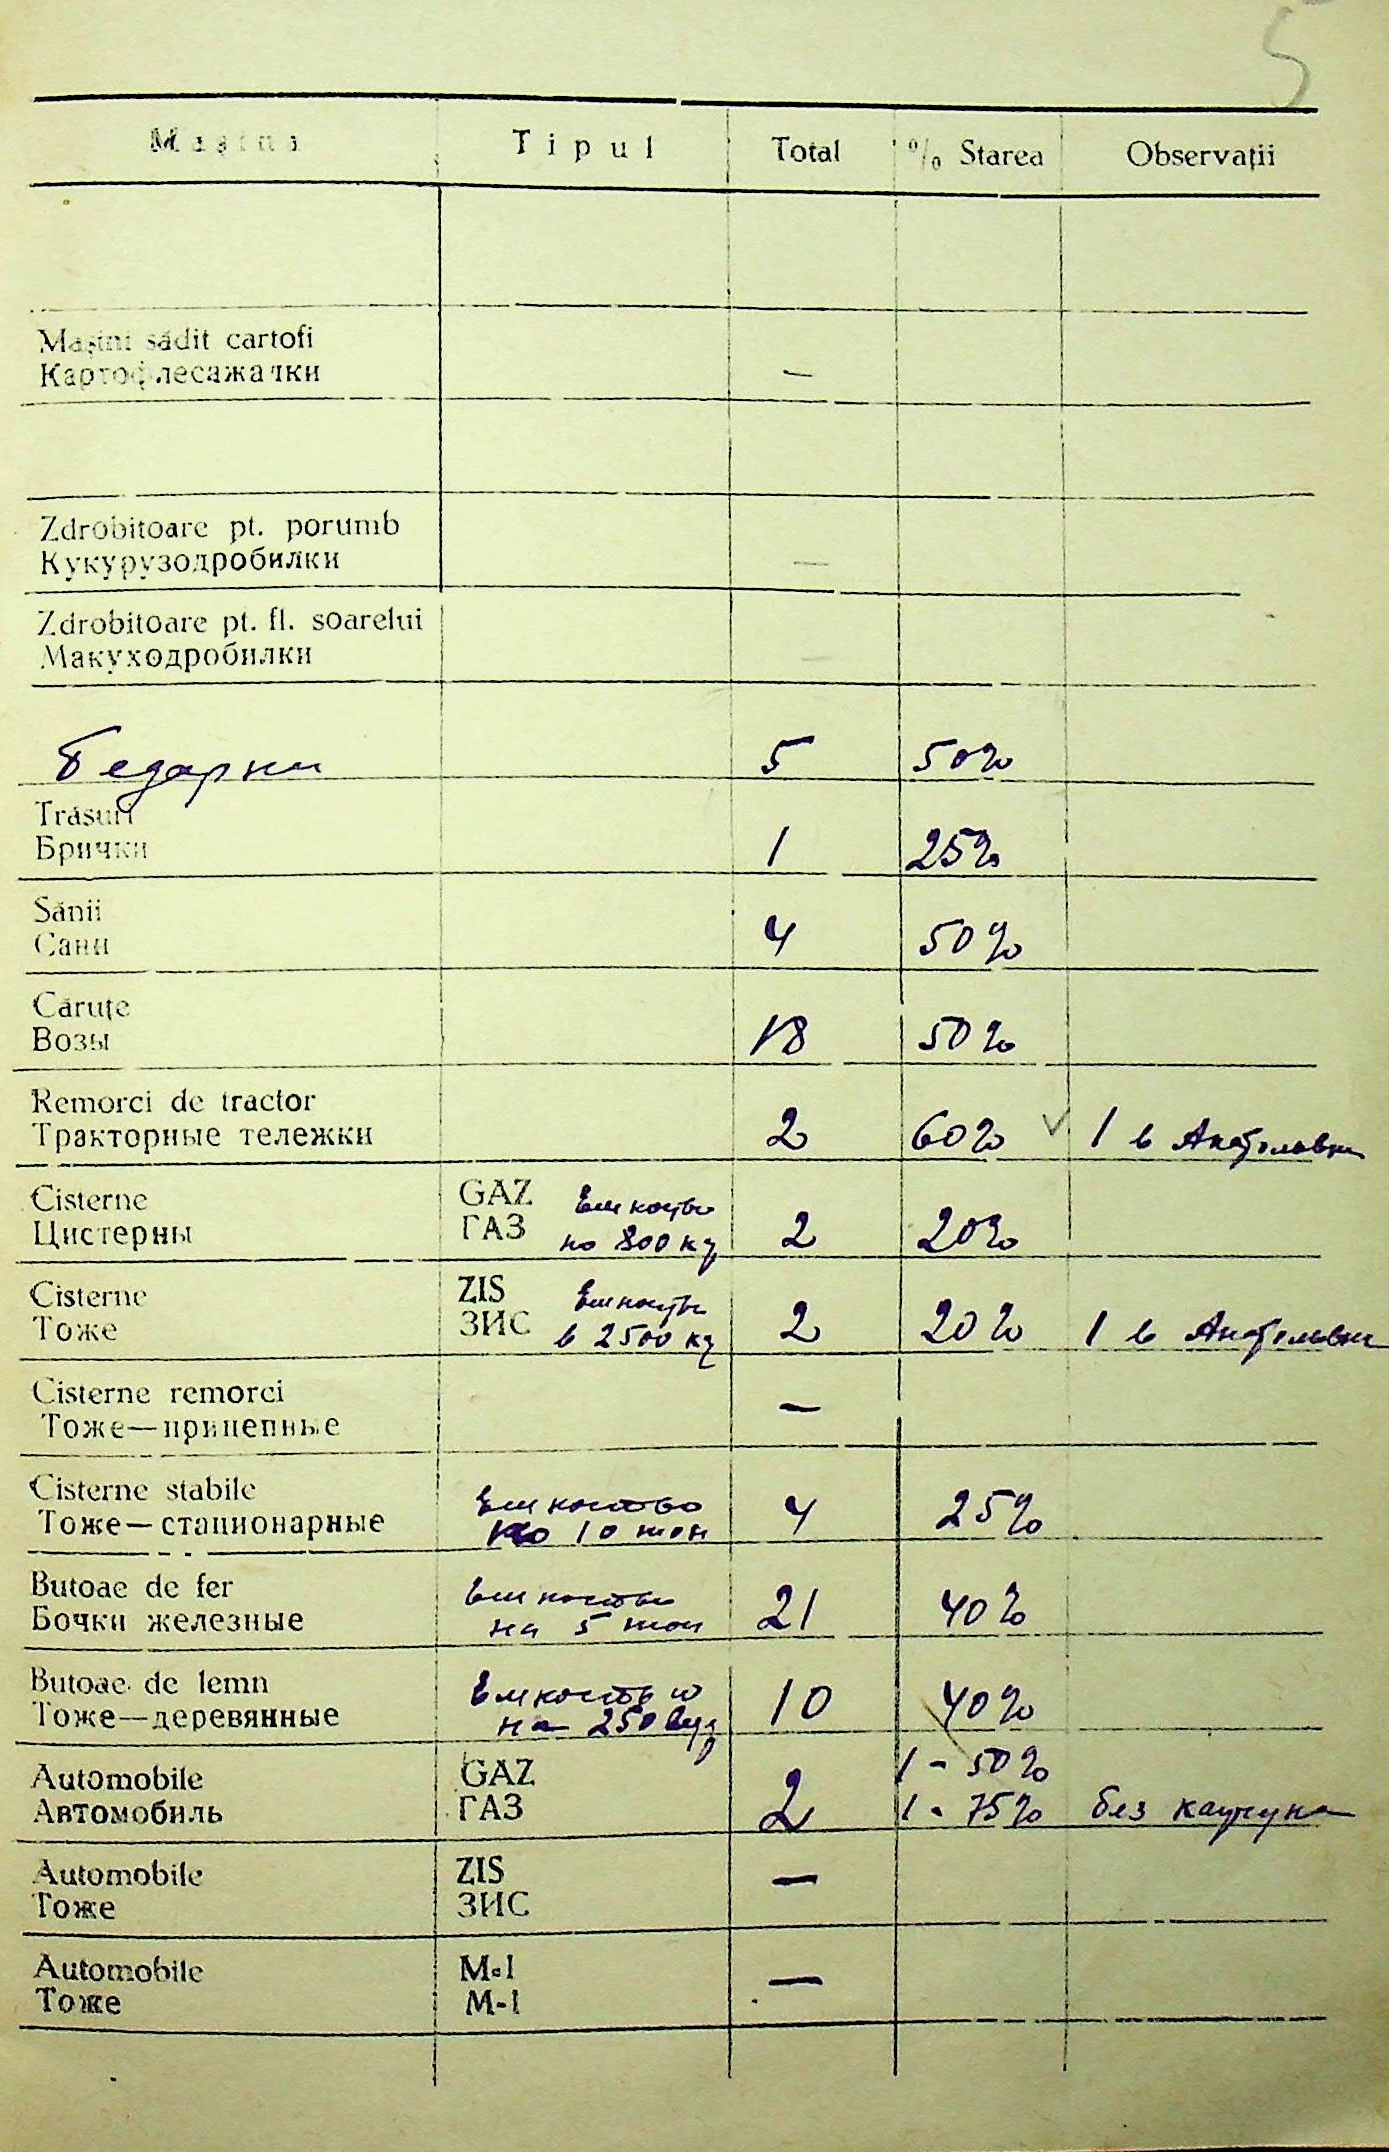 5
Mașina Tipul Total % Starea Observații
Mașini sădit cartofi
Картофлесажачки —
Zdrobitoare pt. porumb
Кукурузодробилки —
Zdrobitoare pt. fl. soarelui
Макуходробилки —
Бедарки 5 50%
Trăsuri
Брички 1 25%
Sănii
Сани 4 50%
Căruțe
Возы 18 50%
Remorci de tractor
Тракторные тележки 2 60% 1 в Анатольевке
Cisterne GAZ Емкостью
Цистерны ГАЗ по 800 кг 2 20%
Cisterne ZIS Емкостью
Тоже ЗИС в 2500 кг 2 20% 1 в Анатольевке
Cisterne remorci
Тоже—прицепные —
Cisterne stabile Емкостью
Тоже—стационарные по 10 тон 4 25%
Butoae de fer Емкостью
Бочки железные на 5 тон 21 40%
Butoae de lemn Емкостью
Тоже—деревянные на 250 10 40%
Automobile GAZ 1 - 50%
Автомобиль ГАЗ 2 1 - 75% без каучука
Automobile ZIS
Тоже ЗИС —
Automobile M-1
Тоже М-1 —